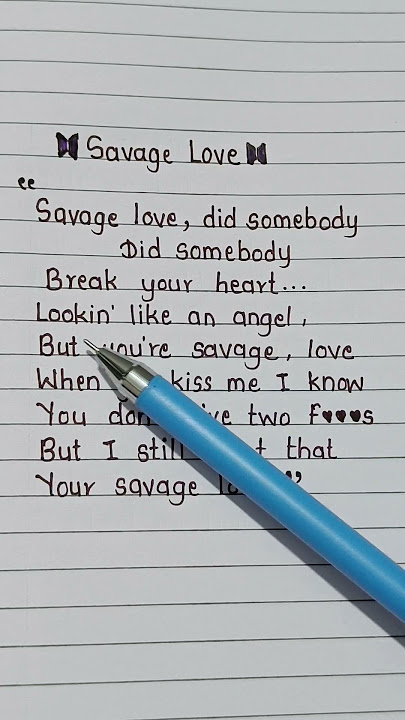 Savage Love
“
Savage love, did somebody
Did somebody
Break your heart...
Lookin' like an angel,
But you're savage, love
When kiss me I know
You two f♥♥♥s
But I still that
Your savage ”